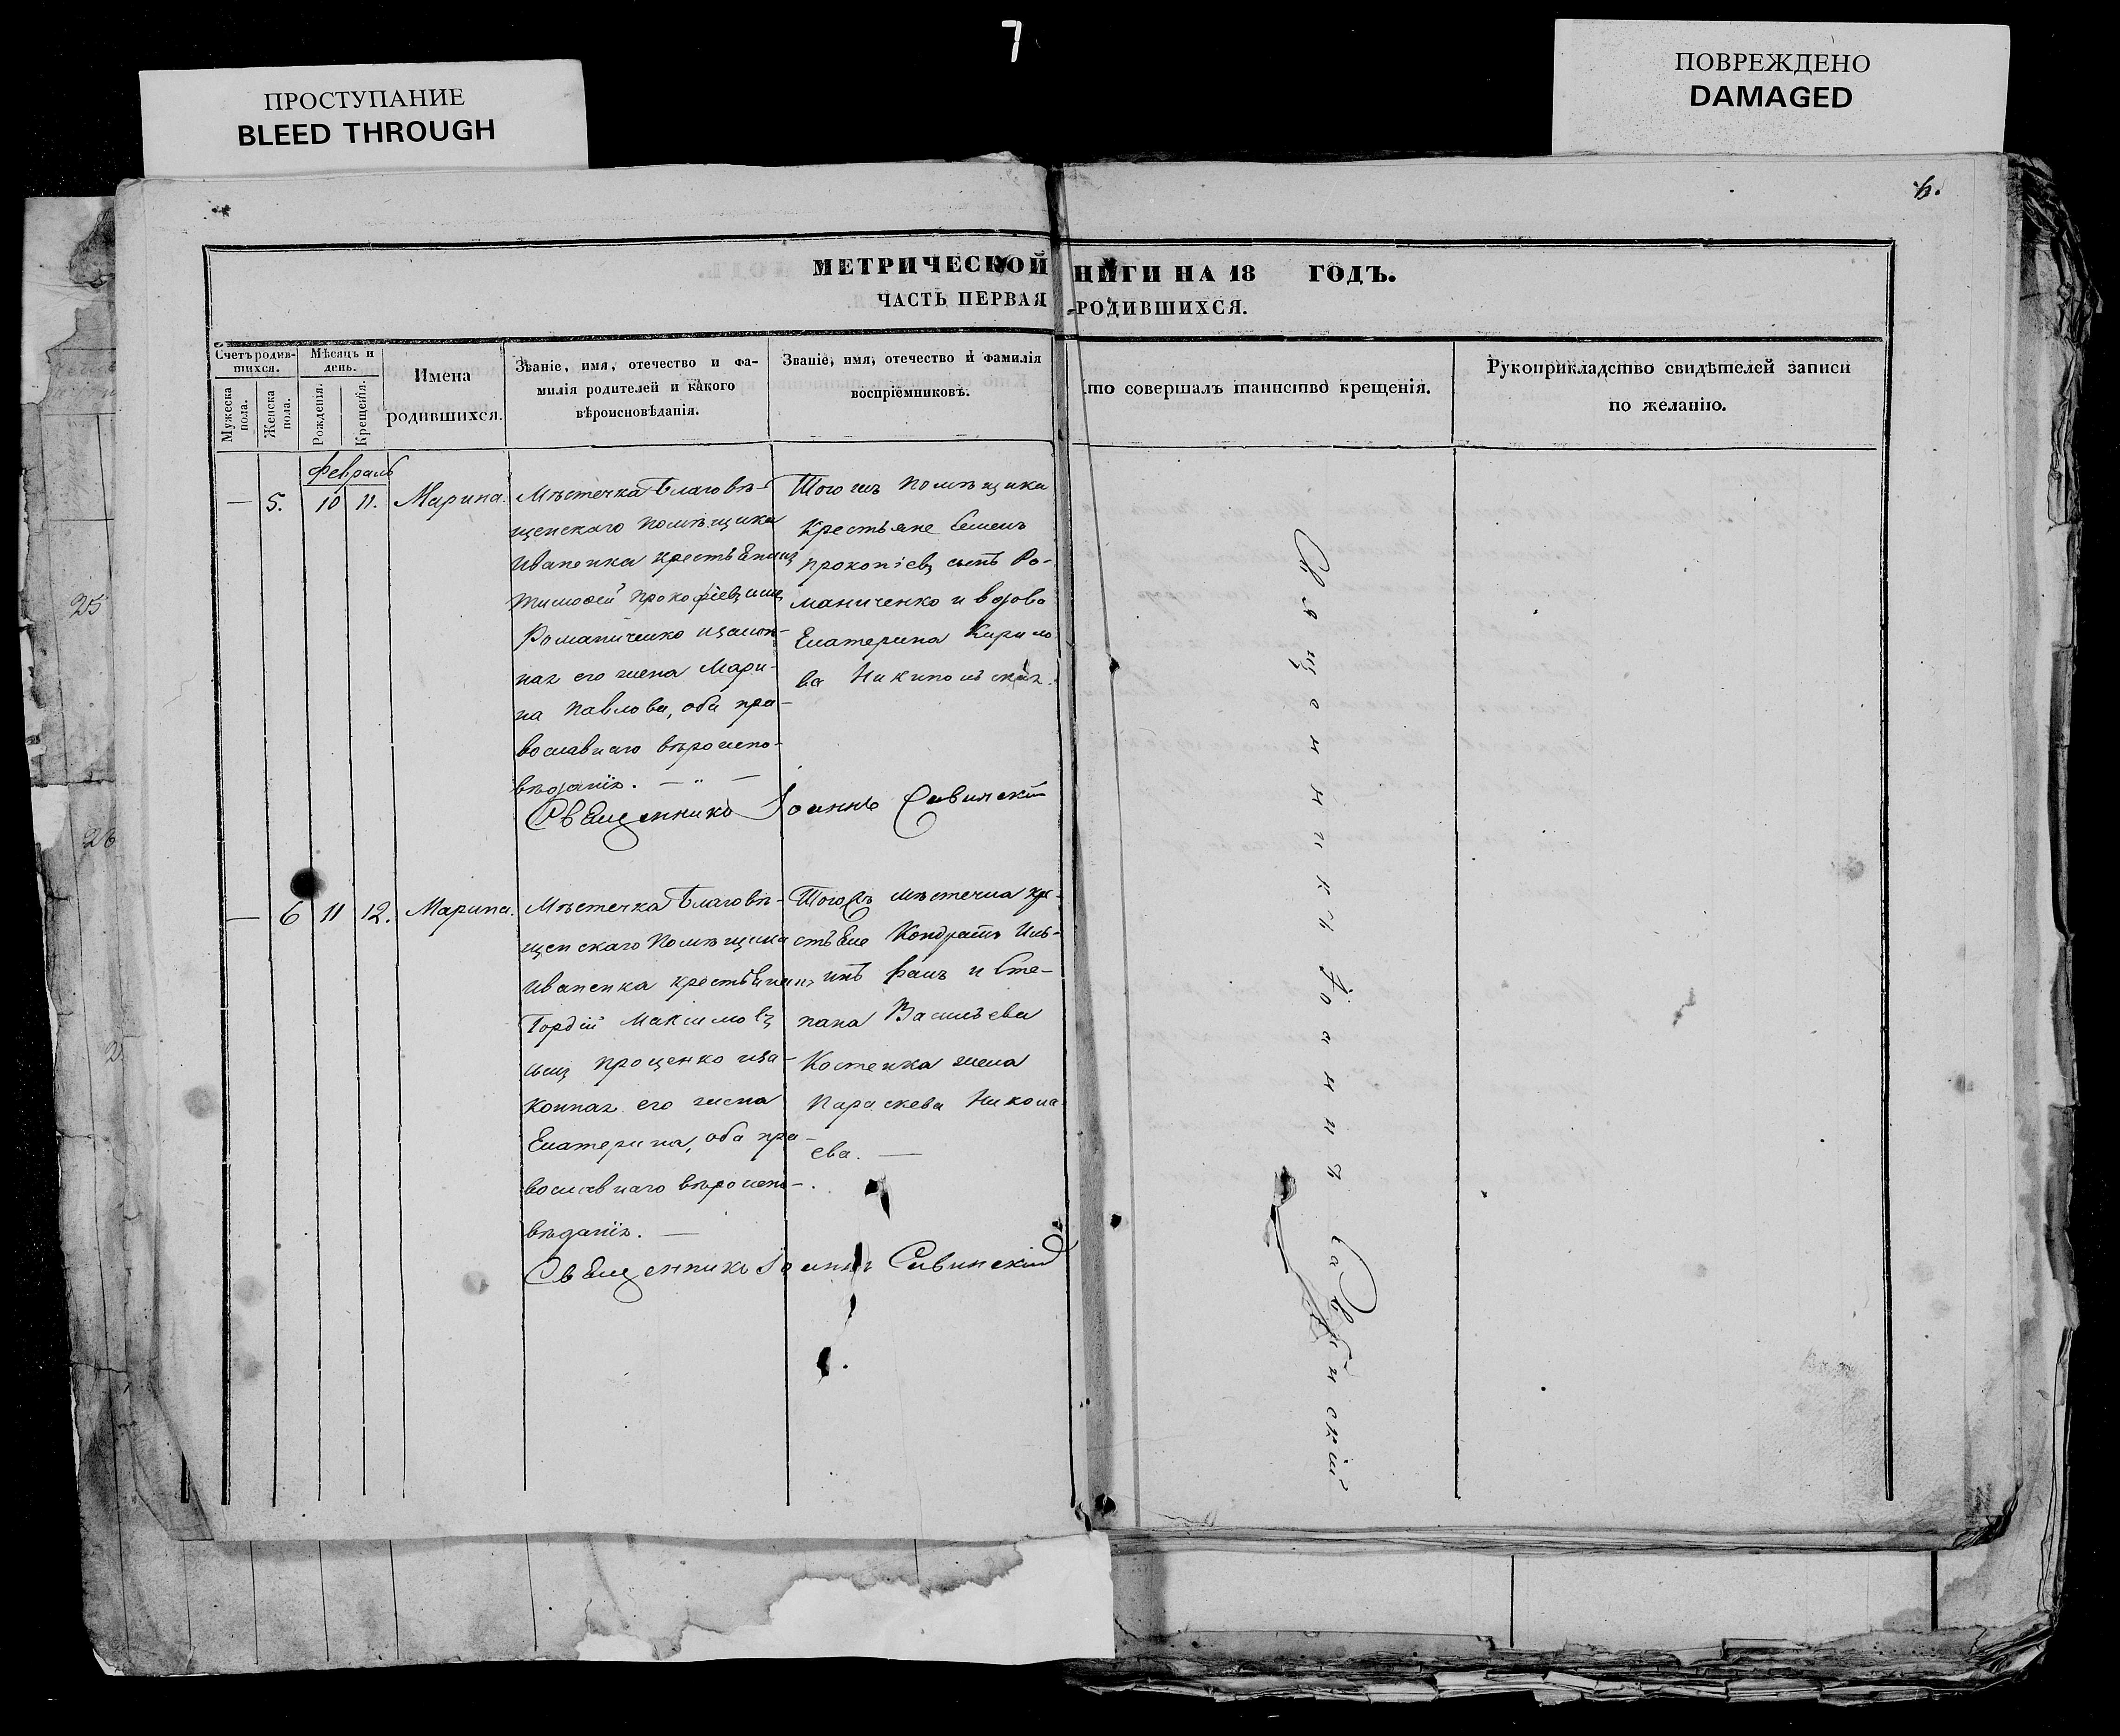 7
ПРОСТУПАНИЕ
BLEED THROUGH
ПОВРЕЖДЕНО
DAMAGED
МЕТРИЧЕСКОЙ НИГИ НА 18 ГОДЪ.
ЧАСТЬ ПЕРВАЯ РОДИВШИХСЯ.
Счетъ родив-
шихся.
Мужеска
пола.
Женска
пола.
Мѣсяцъ и
день.
Рожденія.
Крещенія.
Имена
родившихся.
Званіе, имя, отечество и фа-
милія родителей и какого
вѣроисновѣданія.
Званіе, имя, отечество и фамилія
воспріемниковъ.
то совершалъ таинство крещенія.
Рукоприкладство свидѣтелей записи
по желанію.
Февраль
— 5. 10 11. Марина.
Мѣстечка Благовѣ-
щенскаго помѣщика
Иваненка крестьянинъ
Тимофей Прокофіевъ сынъ
Романиченко изакон-
ная его жена Мари-
на Павлова, оба пра-
вославнаго вѣроиспо-
вѣданія. — " —
Тогожъ помѣщика
крестьяне Семенъ
Прокопіевъ сынъ Ро-
маниченко и вдова
Екатерина Кирило
ва
Священникъ Іоаннъ Савинскій
— 6 11 12. Марина.
Мѣстечка Благовѣ-
щенскаго помѣщика
Иваненка крестьянинъ
Гордій Максимовъ
сынъ Проценко иза-
конная его жена
Екатерина, оба пра-
вославнаго вѣроиспо-
вѣданія. —
Тогожъ мѣстечка кре-
стьяне Кондратъ Иль-
инъ и Сте-
пана Васильева
Костенка жена
Параскева Никола
ева. —
Священникъ Іоаннъ Савинскій
Священникъ Іоаннъ Савинскій
25
26